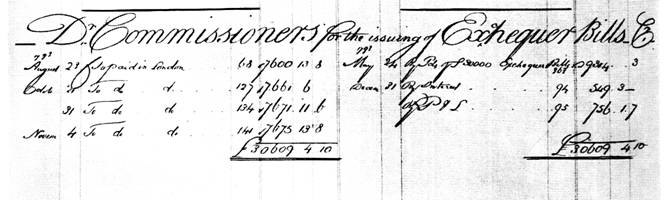 Dr Commissioners for the issuing of Exchequer Bills Cr
1793
August 23 To paid in London 68 7600 13 8
Octob To do do 127 7661 6
31 To do do 134 7671 11 6
Novem 4 To do do 141 7675 13 8
£ 30609 4 10
1793
May 24 By of £30000 Exchequer Bills 29304 . 3
Decem 31 By Interest 94 549 3 —
By P & L 95 756 1.7
£ 30609 4 10